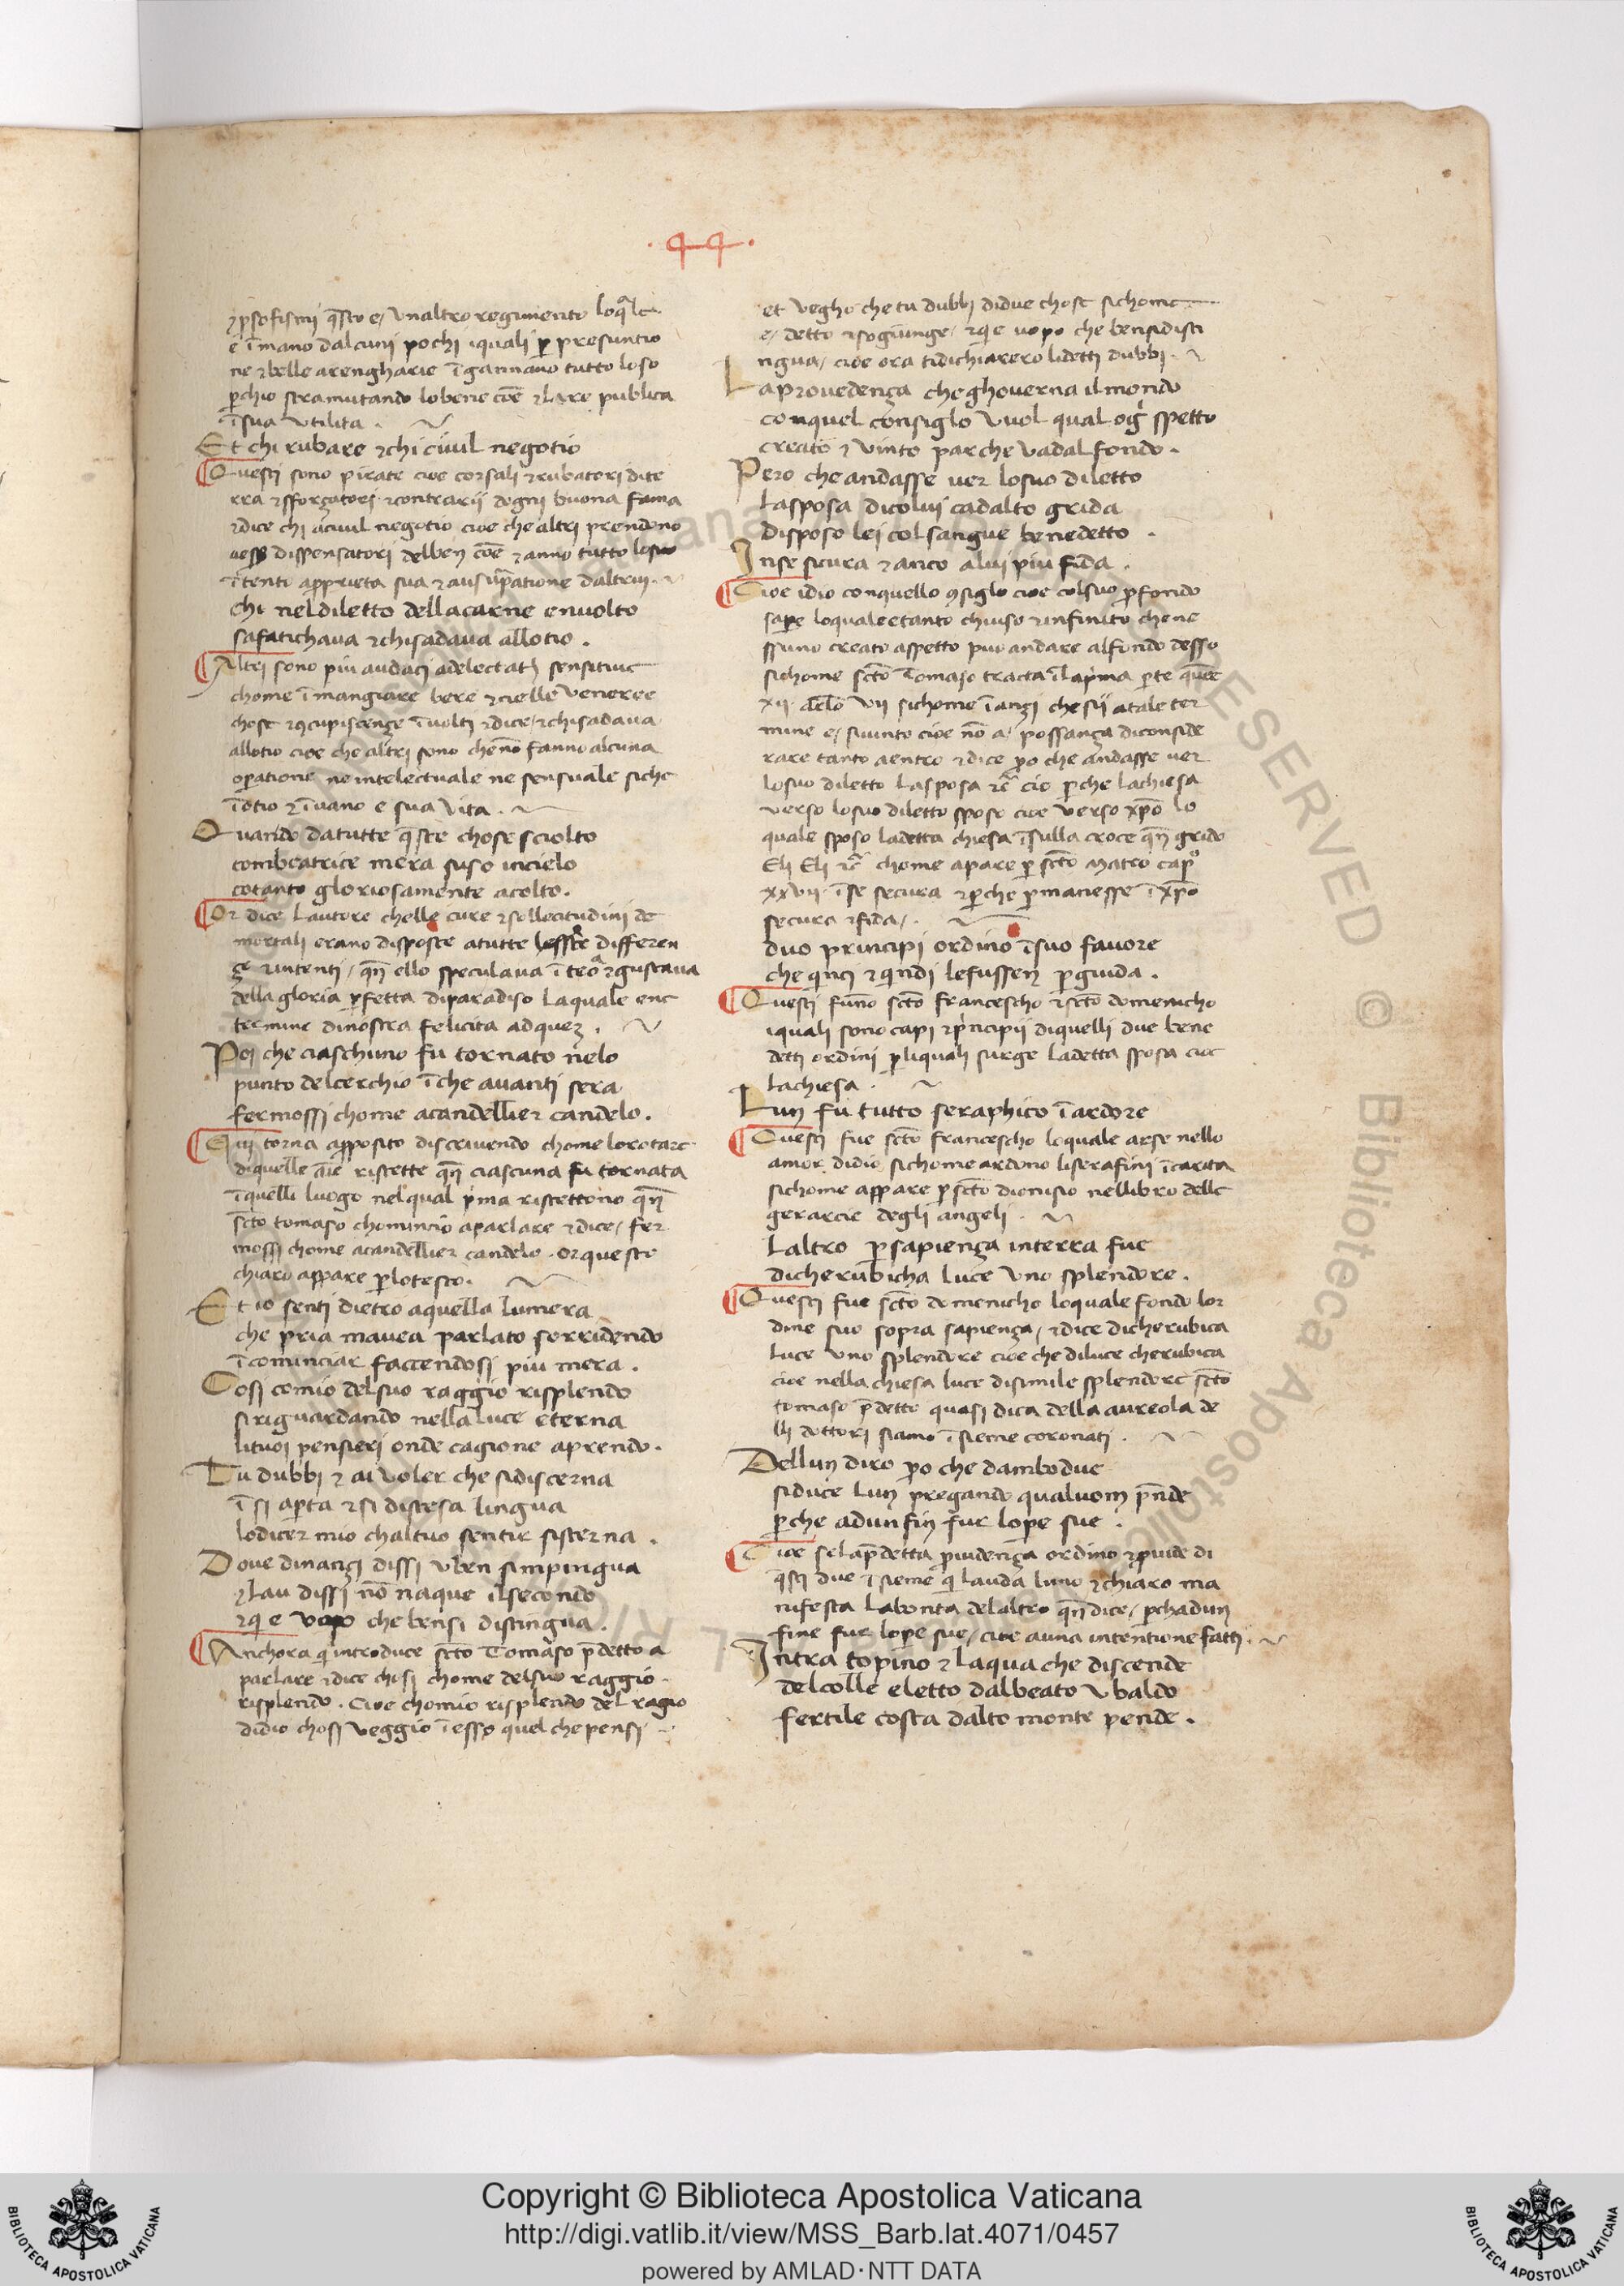 ·44·
⁊ p sofismi q̄sto e/ vnaltro regimento loq̄le
e ī mano dalcuni pochi iquali ꝑ presuntio
ne ⁊ belle arengharie īgannano tutto loso
ꝑchio stramutando lo bene cōe ⁊ la re publica
ī sua vtilita .
Et chi rubare ⁊ chi ciuil negotio
Questi sono pirate cioe corsali ⁊ rubatori dite
rra ⁊ sforzatori ⁊ contrarii dogni buona fama
⁊ dice chi aciuil negotio cioe che altri prendono
uesß dispensatori delben cōe ⁊ anno tutto losuo
ītento aꝓprieta sua ⁊ ausurpatione daltrui.
chi nel diletto dellacarne enuolto
safatichaua ⁊ chisadaua allotio .
Altri sono piu audaci adelectatī sensitiue
chome ī mangiare bere ⁊ nelle veneree
chose ⁊ ɔcupiscenze ī uolti ⁊ dice/⁊ chisadaua
allotio cioe che altri sono che nō fanno alcuna
oꝑatione ne intelectuale ne sensuale siche
ī otio ⁊ ī uano e sua vita .
Quando datutte q̄ste chose sciolto
combeatrice mera suso incielo
cotanto gloriosamente acolto.
Or dice lautore chelle cure ⁊ sollecitudini de
mortali erano disposte atutte differen
ze ⁊ intenti/ qn̄ ello speculaua ī teo ⁊ gustaua
della gloria ꝑfetta diparadiso laquale enc
termine dinostra felicita adquez .
Poi che ciaschuno fu tornato nelo
punto delcerchio ī che auanti sera
fermossi chome acandellier candelo.
Qui torna aꝓposito discriuendo chome lorotare
diquelle aīe ristette qn̄ ciascuna fu tornata
ī quelli luogo nelqual p̄ma ristettono qn̄
scto tomaso chomincio aparlare ⁊ dice/ fer
mossi chome acandellier candelo. Or questo
chiaro appare ꝑlotesto.
Et io senti dietro aquella lumera
che pria mauea parlato sorridendo
īcominciar faccendosi piu mera .
Cosi comio delsuo raggio risplendo
si riguardando nella luce eterna
lituoi pensieri onde cagione aprendo.
Tu dubbi ⁊ ai voler che sidiscerna
ī si aꝑta ⁊ si distesa lingua
lodicer mio chaltuo sentir sisterna .
Doue dinanzi dissi vben simpingua
⁊ lau dissi nō naque ilsecondo
⁊ qi e vopo che bensi distingua .
Anchora qi introduce scto Tomaso p̄detto a
parlare ⁊ dice chosi chome delsuo raggio
risplendo . Cioe chomio risplendo del ragio
didio chosi veggio ī esso quel che pensi
et vegho che tu dubbi didue chose sichome
e/ detto ⁊ sogiunge/ ⁊ qi e uopo che bensidisti
ngua/ cioe ora tidichiarero lidetti dubbi .
La prouedenza che ghouerna ilmondo
conquel consiglo vuol qual og̃ spetto
creato ⁊ vinto par che vadal fondo .
Pero che andasse uer losuo diletto
lasposa dicolui cadalto grida
disposo lei col sangue benedetto .
Inse sicura ⁊ anco alui piu fida .
Cioe idio conquello ɔsiglo cioe colsuo ꝓfondo
saꝑe loqualeetanto chiuso ⁊ infinito chene
ssuno creato aspetto puo andare alfondo desso
sichome scto Tomaso tracta ī lapima ꝑte
xij. vij sichome īanzi che sij atale ter
mine e/ siuinto cioe nō a/ possanza diconside
rare tanto aentro ⁊ dice ꝑo che andasse uer
losuo diletto lasposa ⁊c̄ cio ꝑche lachiesa
verso losuo diletto sposo cioe verso xp̄o lo
quale sposo ladetta chiesa ī sulla croce qn̄ grido
Eli Eli ⁊c̄ chome apare ꝑ scto Matro capº
xxvij. ī se secura ⁊ ꝑche ꝑmanesse ī xp̄o
secura ⁊ fida/.
duo principi ordino ī suo fauore
che qinci ⁊ qindi lefussen ꝑ guida .
Questi funo scto Francescho ⁊ scto domenicho
iquali sono capi ⁊ pincipii diquelli due bene
detti ordini ꝑliquali surge ladetta sposa cioe
lachiesa .
Lun fu tutto seraphico ī ardore
Questi fue scto Francescho loquale arse nello
amor didio sichome ardono liserafini ī carita
sichome appare ꝑ scto dionisio nellibro delle
gerarcie degli angeli .
Laltro ꝑ sapienza interra fue
dicherubicha luce vno splendore .
Questi fue scto domenicho loquale fondo lor
dine suo sopra sapienza/ ⁊ dice dicherubica
luce vno splendore cioe che diluce cherubica
cioe nella chiesa luce disimile splendore scto
tomaso p̄detto quasi dica della aureola de
lli dottori siamo ī sieme coronati .
Dellun diro ꝑo che dambodue
siduce lun pregando qualuom p̄nde
ꝑche adun fin fur lope sue .
Cioe se lap̄detta ꝓuidenza ordino ⁊ ꝓuide di
q̄sti due ī sieme qi lauda luno ⁊ chiaro ma
nifesta labonta delaltro qn̄ dice/ ꝑchadun
fine fur lope sue/ cioe auna intentione fatti .
Intra topino ⁊ laqua che discende
delcolle eletto dalbeato vbaldo
fertile costa dalto monte pende .
RESERVED © Biblioteca Apostolica
Copyright © Biblioteca Apostolica Vaticana
http://digi.vatlib.it/view/MSS_Barb.lat.4071/0457
powered by AMLAD·NTT DATA
BIBLIOTECA APOSTOLICA VATICANA
BIBLIOTECA APOSTOLICA VATICANA